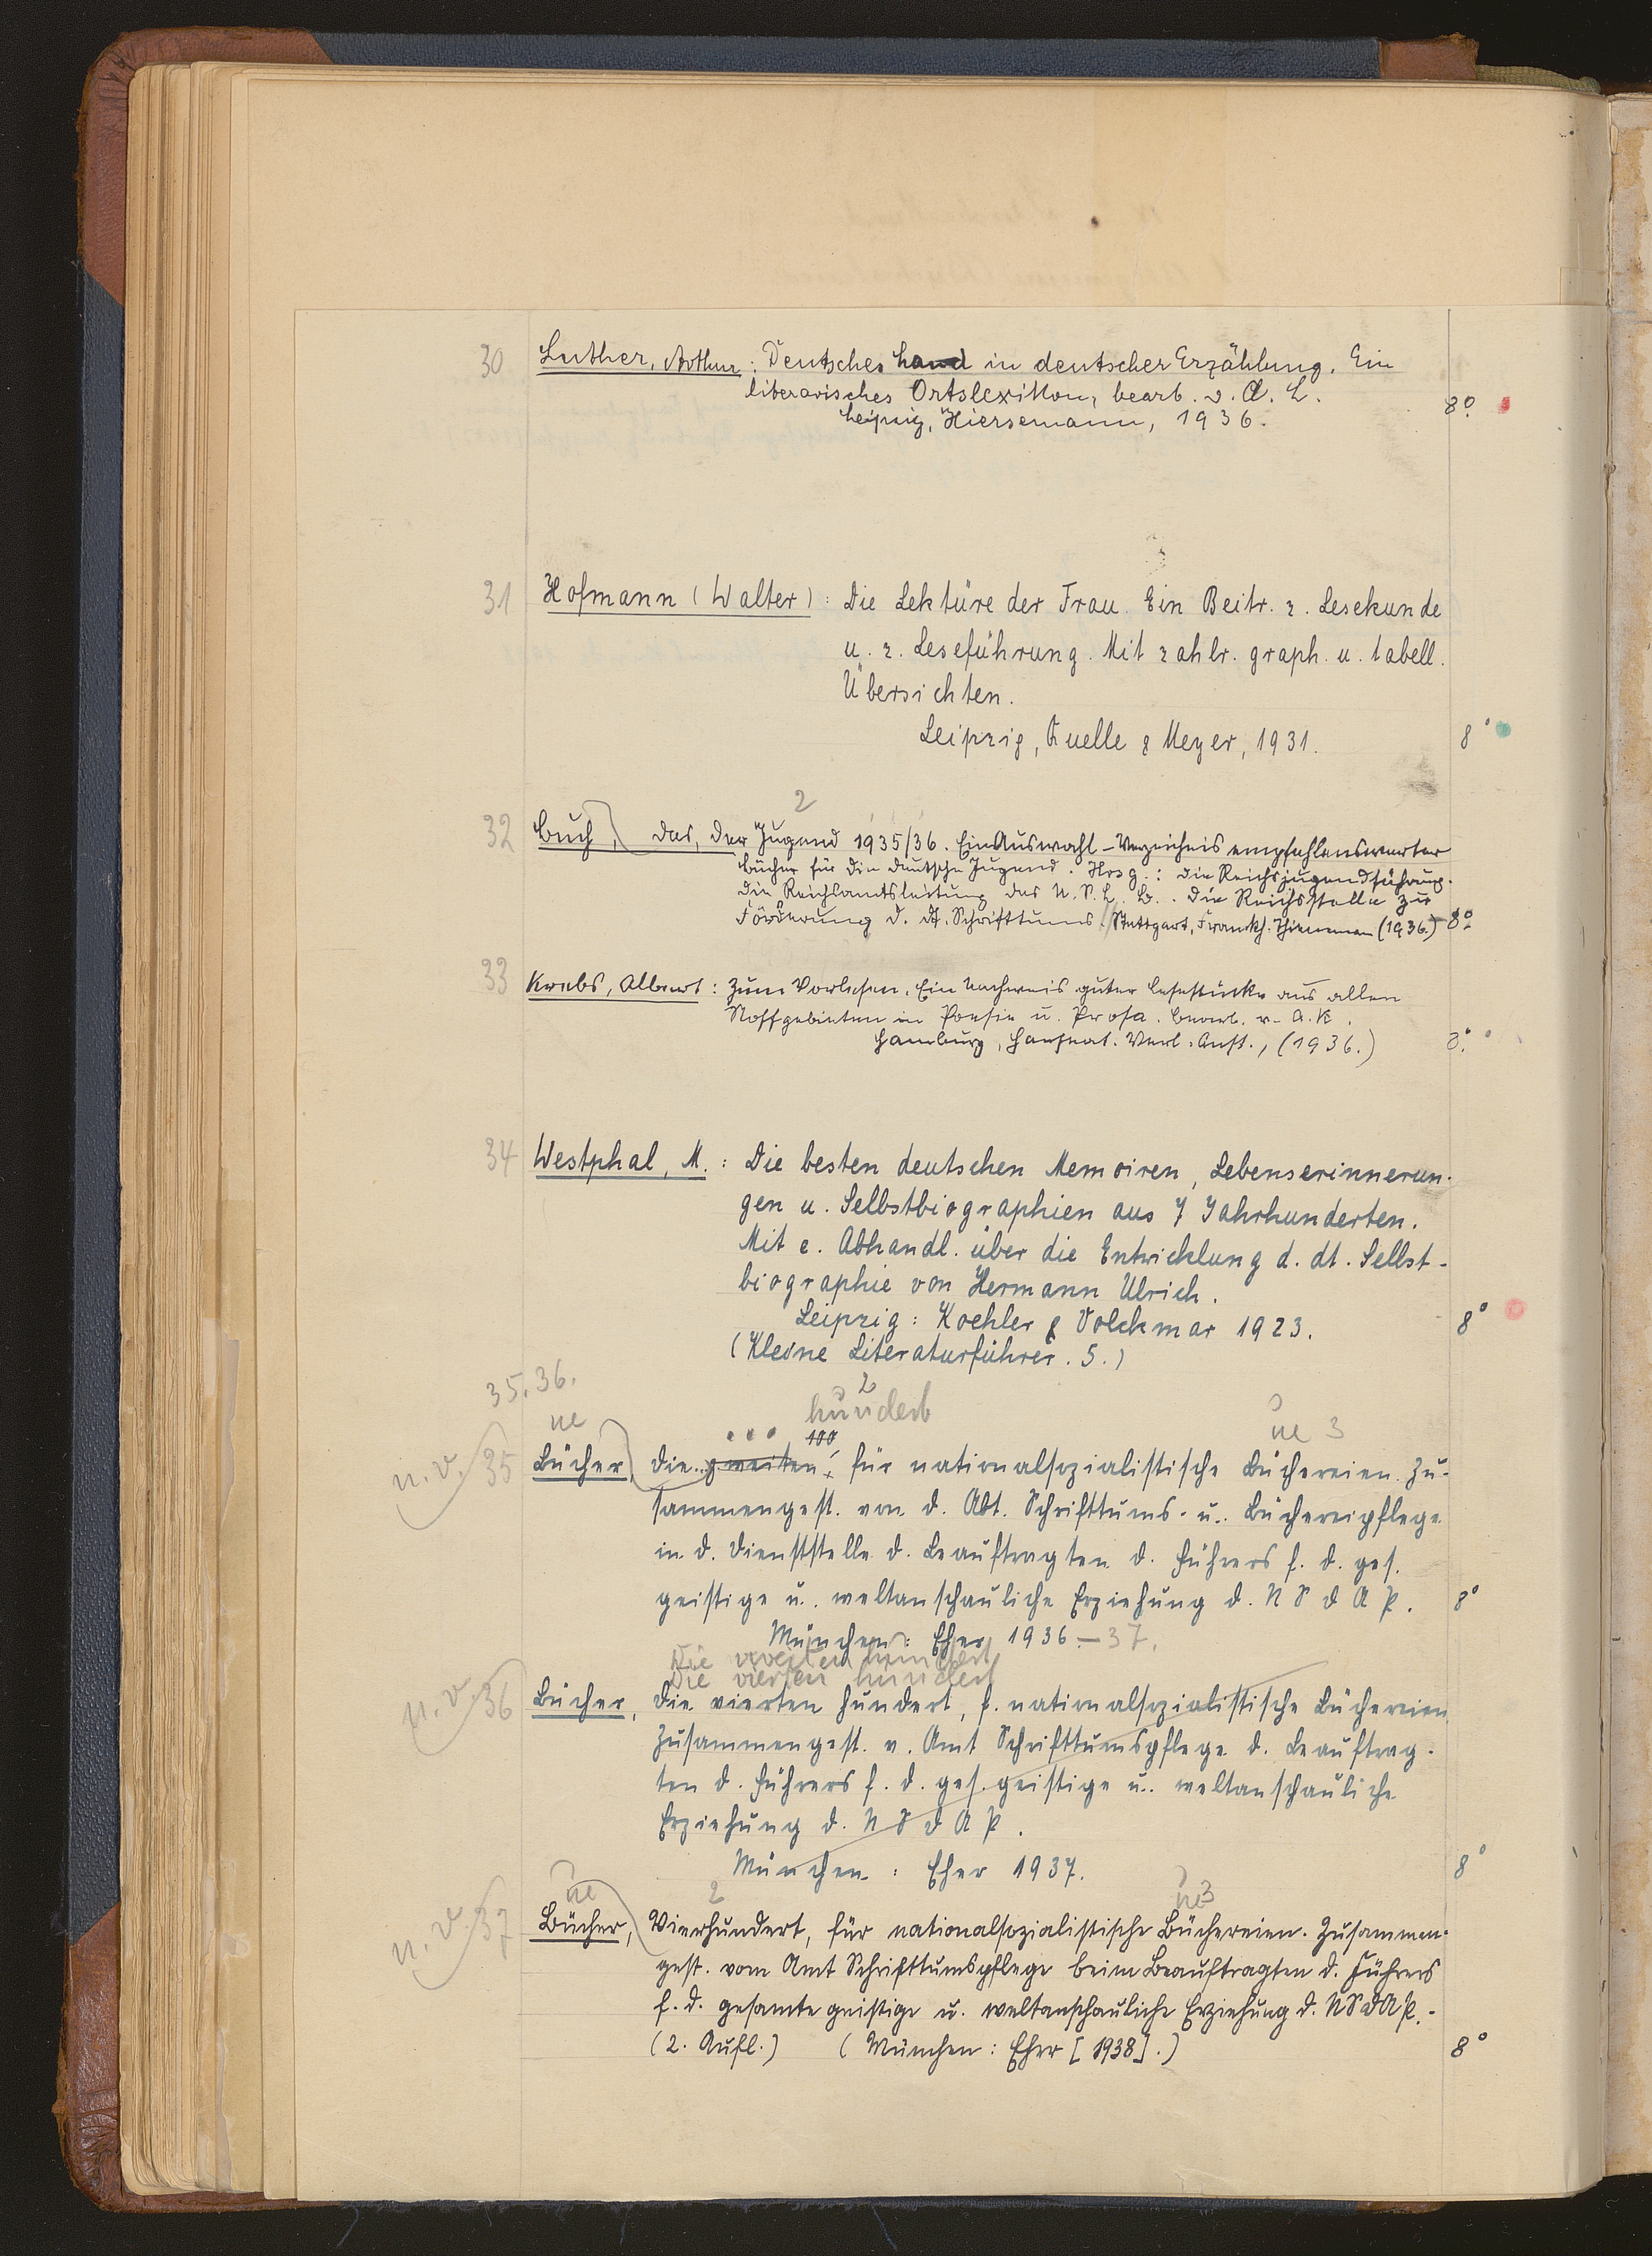 30 Luther, Arthur: Deutsches Land in deutscher Erzählung. Ein
literarisches Ortslexikon, bearb. v. A. L.
Leipzig, Hiersemann, 1936. 8°
31 Hofmann (Walter): Die Lektüre der Frau. Ein Beitr. z. Lesekunde
u. z. Leseführung. Mit zahlr. graph. u. tabell.
Übersichten.
Leipzig, Quelle & Meyer, 1931. 8°
2
32 Buch, das, der Jugend 1935/36. Ein Auswahl-Verzeichnis empfehlenswerter
Bücher für die deutsche Jugend. Hrsg.: die Reichsjugendführung.
die Reichsamtsleitung des N.S.L.B. die Reichsstelle zur
Förderung d. dt. Schrifttums. Stuttgart, Franckh. Thienemann (1936.) 8°
33 Krebs, Albert: Zum Vorlesen. Ein Nachweis guter Lesestücke aus allen
Stoffgebieten in Poesie u. Prosa. bearb. v. A. K.
Hamburg, Hanseat. Verl. Anst., (1936.) 8°
34 Westphal, M.: Die besten deutschen Memoiren, Lebenserinnerun-
gen u. Selbstbiographien aus 7 Jahrhunderten.
Mit e. Abhandl. über die Entwicklung d. dt. Selbst-
biographie von Hermann Ulrich.
Leipzig: Koehler & Volckmar 1923. 8°
(Kleine Literaturführer. 5.)
35. 36.
2
ne hundert ne 3
... 100
n. v. 35 Bücher, die zweiten, für nationalsozialistische Büchereien. Zu-
sammengest. von d. Abt. Schrifttums- u. Büchereipflege
in d. Dienststelle d. Beauftragten d. Führers f. d. ges.
geistige u. weltanschauliche Erziehung d. NSDAP. 8°
München: Eher 1936-37.
Die zweiten hundert
Die vierten hundert
n. v. 36 Bücher, die vierten hundert, f. nationalsozialistische Büchereien.
Zusammengest. v. Amt Schrifttumspflege d. Beauftrag-
ten d. Führers f. d. ges. geistige u. weltanschauliche
Erziehung d. NSDAP.
München: Eher 1937. 8°
ne 2 ne 3
n. v. 37 Bücher, Vierhundert, für nationalsozialistische Büchereien. Zusammen-
gest. vom Amt Schrifttumspflege beim Beauftragten d. Führers
f. d. gesamte geistige u. weltanschauliche Erziehung d. NSDAP.-
(2. Aufl.) (München: Eher [1938].) 8°